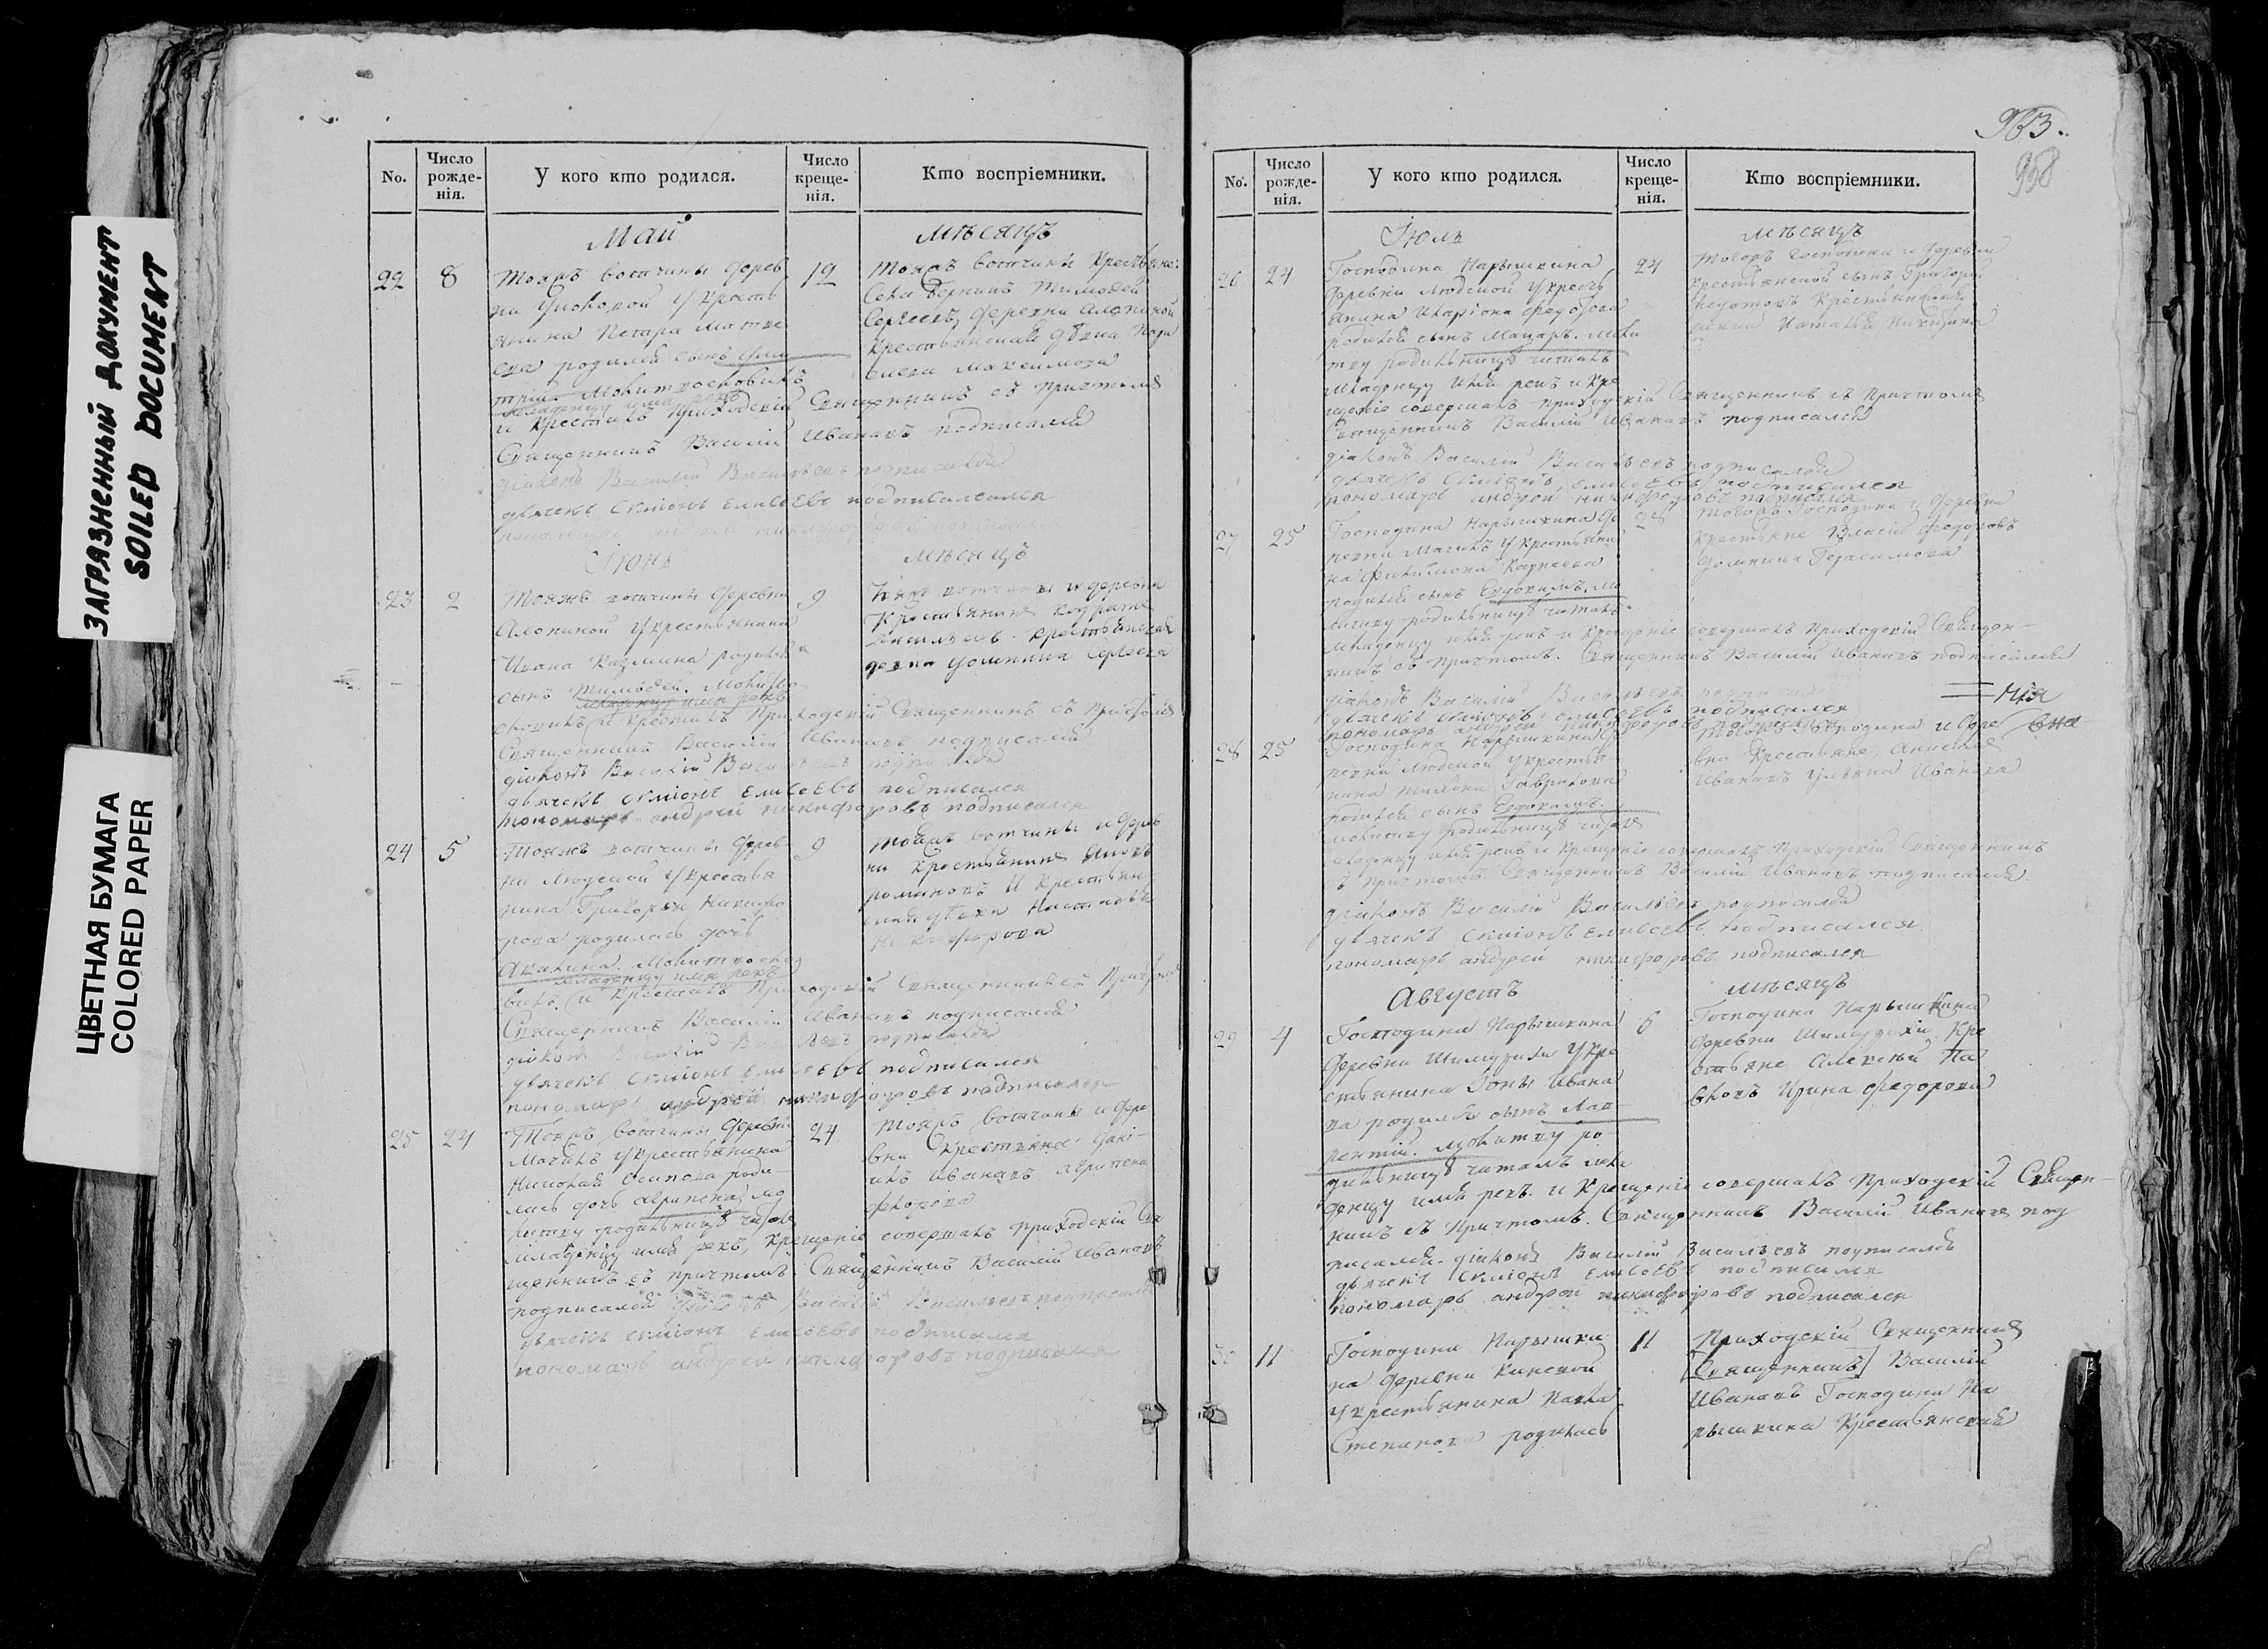 ЗАГРЯЗНЕННЫЙ ДОКУМЕНТ
SOILED DOCUMENT
ЦВЕТНАЯ БУМАГА
COLORED PAPER
No. Число рожденія. У кого кто родился. Число крещенія. Кто воспріемники.
Май мѣсяцъ
22 8 12
Тояжъ вотчины дерев
ни у крестья
нина Петра Матве
ева родился сынъ Дми
трій. Молитвословилъ
младенцу имя рекъ
и крестилъ приходскій Священникъ съ причтомъ
Священникъ Василій Ивановъ подписался
діаконъ Василій Васильевъ подписался
дьячекъ Симіонъ Елисеевъ подписался
пономарь андрей никифоровъ подписался
Тояжъ вотчины крестьяне
Тимофей
Сергеевъ, деревни Алопиной
крестьянская девка Пела
гея Максимова
Іюнь мѣсяцъ
23 2 9
Тояжъ вотчины деревни
Алопиной у крестьянина
Ивана Казмина родился
сынъ Тимофей. Молитво
младенцу имя рекъ
словилъ и крестилъ Приходскій Священникъ съ Причтомъ
Священникъ Василій Ивановъ подписался
діаконъ Василій Васильевъ подписался
дьячекъ Симіонъ Елисеевъ подписался
пономарь андрей никифоровъ подписался
вотчины и деревни
Крестьянинъ
Васильевъ крестьянская
девка Домнина Сергеева
24 5 9
Тояжъ вотчины дерев
ни Людской у крестья
нина Григорья Никифо
рова родилась дочь
Акилина. Молитвосло
младенцу имя рекъ
вилъ и крестилъ Приходскій Священникъ съ Причтомъ
Священникъ Василій Ивановъ подписался
діаконъ Василій Васильевъ подписался
дьячекъ Симіонъ Елисеевъ подписался
пономарь андрей никифоровъ подписался
Тояжъ вотчины и дерев
ни Крестьянинъ
Романовъ и крестьян
ская девка Настасья
Никифорова
25 24 24
Тояжъ вотчины деревни
Мачилъ у крестьянина
Николая Осипова роди
лась дочь Агрипена, мо
литву родильнице читалъ
младенцу имя рекъ, крещеніе совершалъ приходскій Свя
щенникъ съ причтомъ. Священникъ Василій Ивановъ
подписался діаконъ Василій Васильевъ подписался
дьячекъ Симіонъ Елисеевъ подписался
пономарь андрей никифоровъ подписался
Тояжъ вотчины и дере
вни Крестьяне Дани
илъ Ивановъ Агрипена
963.
958
No. Число рожденія. У кого кто родился. Число крещенія. Кто воспріемники.
Іюль мѣсяцъ
26 24 24
Господина Нарышкина
деревни Людской у кресть
янина Иларіона Федотова
родился сынъ Макаръ. моли
тву родильнице читалъ
младенцу имя рекъ и кре
щеніе совершалъ приходскій Священникъ съ Причтомъ
Священникъ Василій Ивановъ подписался
діаконъ Василій Васильевъ подписался
дьячекъ Симіонъ Елисеевъ подписался
пономарь андрей никифоровъ подписался
Тогожъ Господина и деревни
крестьянской сынъ Григорій
Федотовъ Крестьянская
Наталья
27 25 28
Господина Нарышкина де
ревни Мачилъ у крестьяни
на Филимона Карпеева
родился сынъ Евдокимъ. мо
литву родильнице читалъ
младенцу имя рекъ и Крещеніе совершалъ Приходскій Священ
никъ съ причтомъ. Священникъ Василій Ивановъ подписался
діаконъ Василій Васильевъ
дьячекъ Симіонъ Елисеевъ подписался
пономарь андрей никифоровъ подписался
Тогожъ Господина и деревни
крестьяне Власій Федоровъ
Домнина Герасимова
28 25
Господина Нарышкина де
ревни Людской у крестья
нина Тихона Гаврилова
родился сынъ Евдокимъ.
молитву родильнице читалъ
младенцу имя рекъ и Крещеніе совершалъ Приходскій Священникъ
съ причтомъ. Священникъ Василій Ивановъ подписался.
діаконъ Василій Васильевъ подписался
дьячекъ Симіонъ Елисеевъ подписался
пономарь андрей никифоровъ подписался
Тогожъ Господина и дере
вни Крестьяне,
Ивановъ Ульяна Иванова
Августъ мѣсяцъ
29 4 5
Господина Нарышкина
деревни у кре
стьянина Іоны Ивано
ва родился сынъ Лав
рентій. молитву ро
дильнице читалъ мла
денцу имя рекъ. и Крещеніе совершалъ Приходскій Священ
никъ съ Причтомъ. Священникъ Василій Ивановъ под
писался діаконъ Василій Васильевъ подписался
дьячекъ Симіонъ Елисеевъ подписался
пономарь андрей никифоровъ подписался
Господина Нарышкина
деревни Кре
стьяне Алексѣй Па
вловъ Ирина Федорова
30 11 11
Господина Нарышки
на деревни Киневой
у крестьянина Павла
Степанова родилась
Приходскій Священникъ
Священникъ Василій
Ивановъ Господина На
рышкина Крестьянская